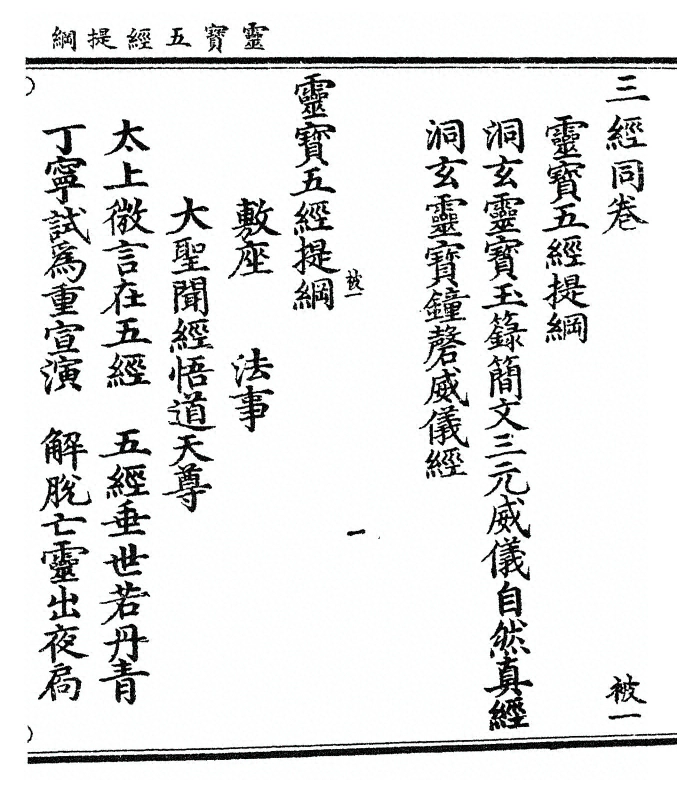 靈寶五經提綱
三經同卷 被一
靈寶五經提綱
洞玄靈寶玉籙簡文三元威儀自然真經
洞玄靈寶鐘磬威儀經
一
靈寶五經提綱 被一
敷座 法事
大聖聞經悟道天尊
太上微言在五經 五經垂世若丹青
丁寧試為重宣演 解脫亡靈出夜扃